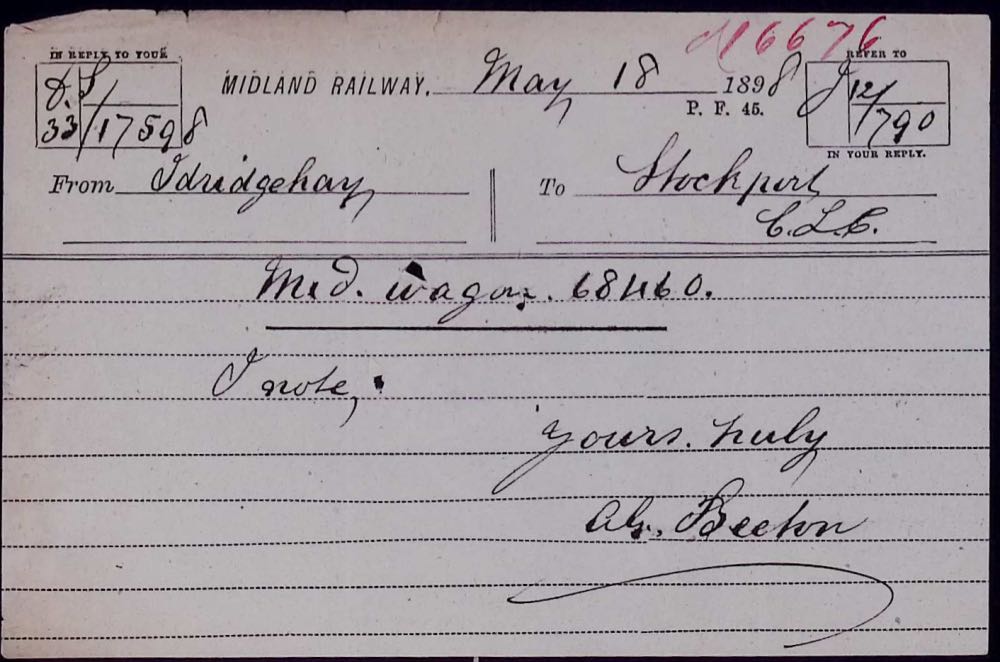 N6676
IN REPLY TO YOUR
REFER TO
D.S/
33/17598
MIDLAND RAILWAY. May 18 1898
P. F. 45.
J 12/790
IN YOUR REPLY.
From Idridgehay
To Stockport
C.L.C.
Mid. Wagon. 68460.
I note,
Yours. truly
Beeton